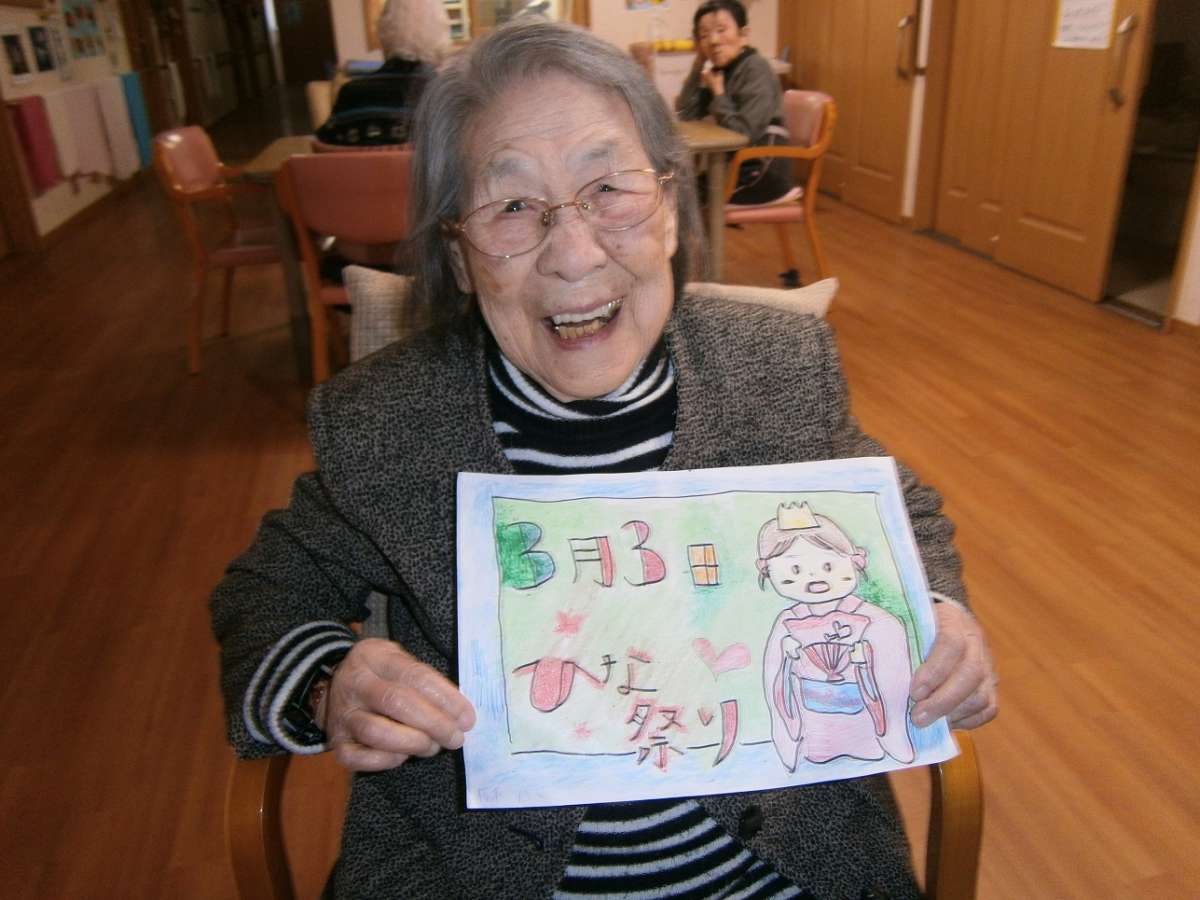 3月3日
ひな
祭り